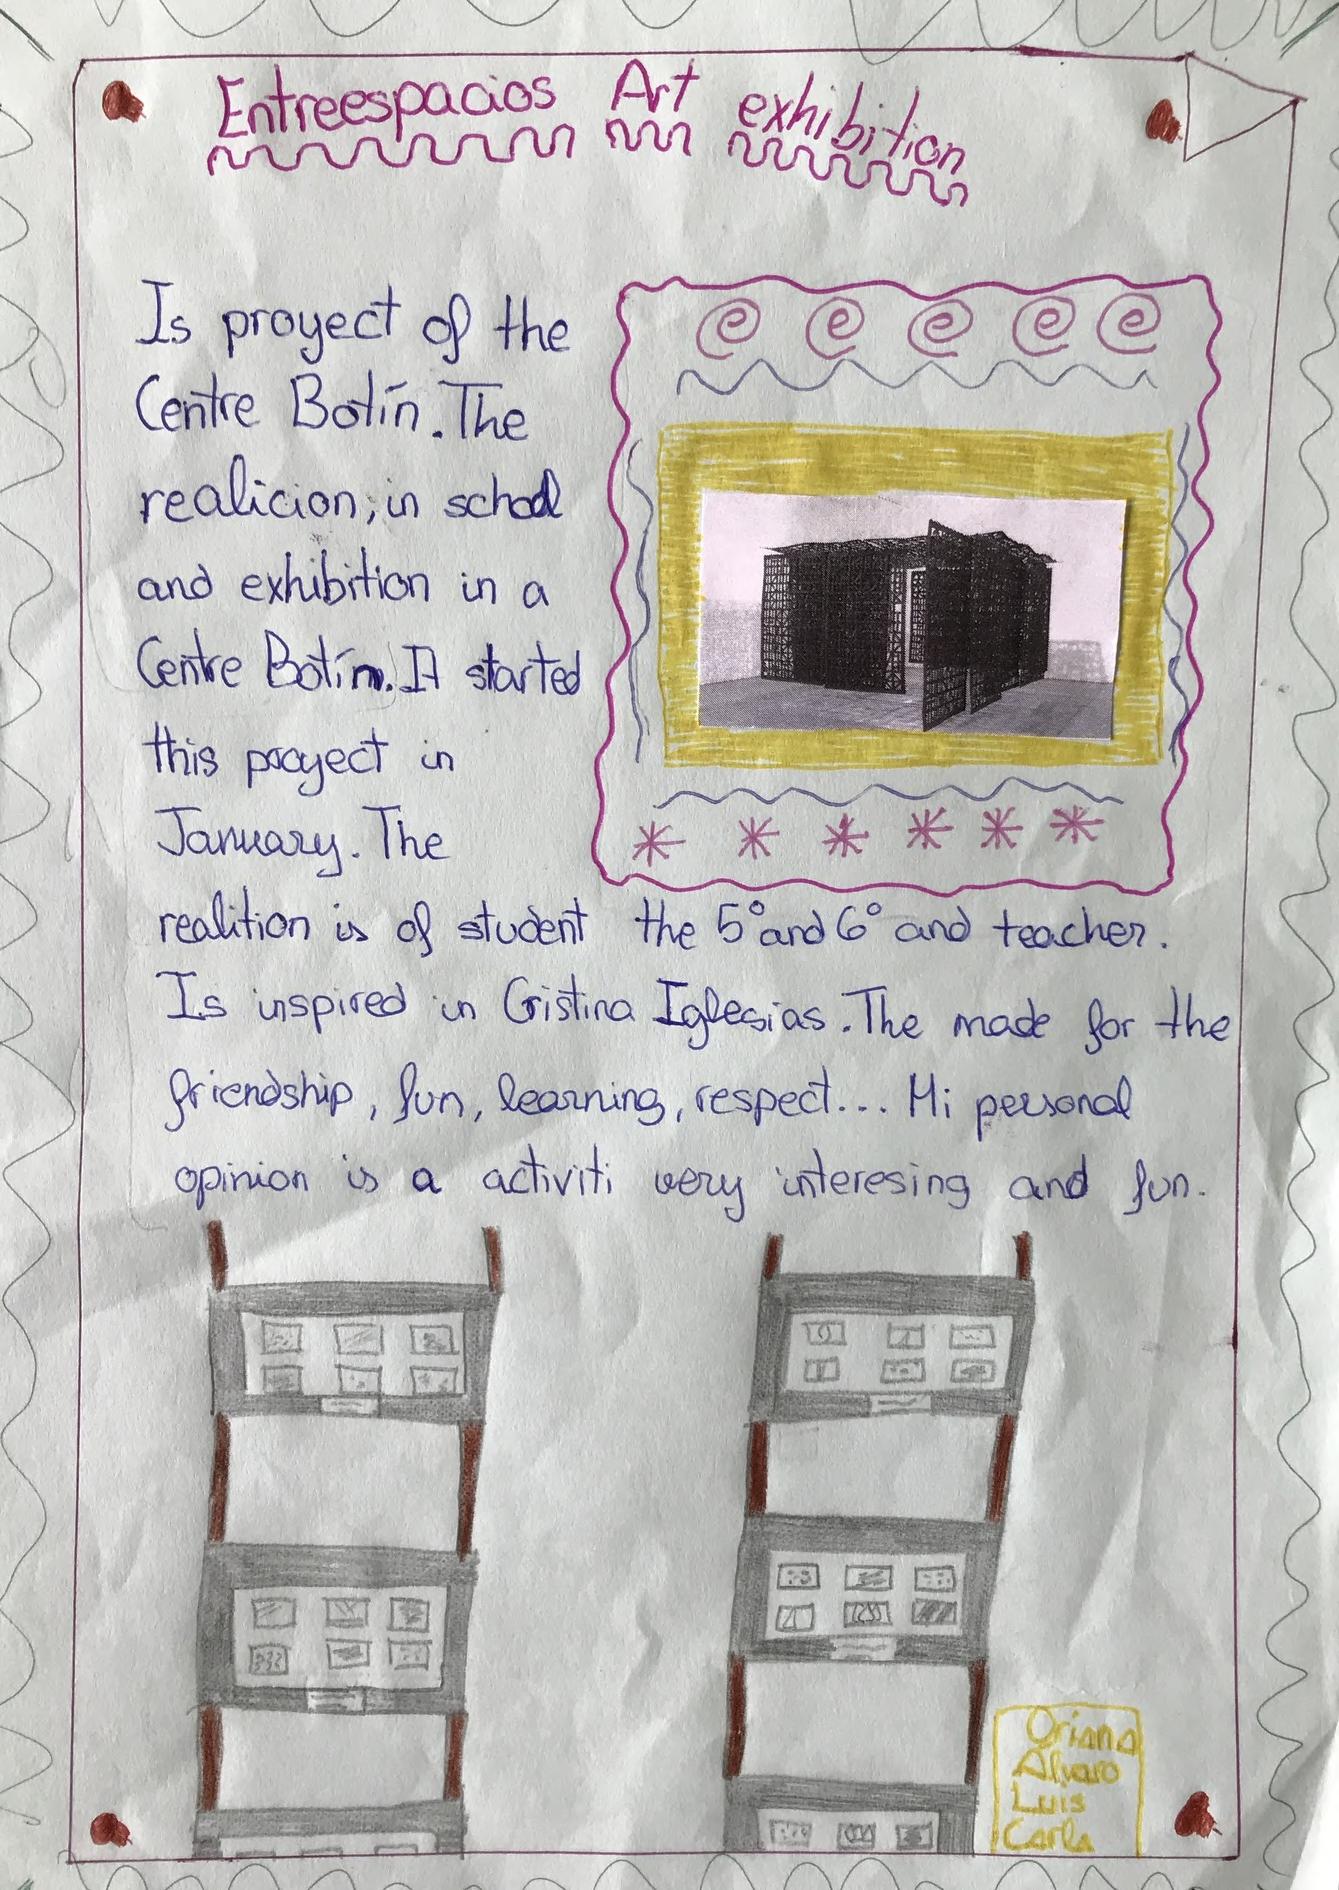 Entreespacios Art exhibition
Is proyect of the
Centre Botín. The
realicion; in school
and exhibition in a
Centre Botín. It started
this proyect in
January. The
realition is of student the 5º and 6º and teacher.
Is inspired in Cristina Iglesias. The made for the
friendship, fun, learning, respect... Mi personal
opinion is a activiti very interesing and fun.
Oriana
Alvaro
Luis
Carla